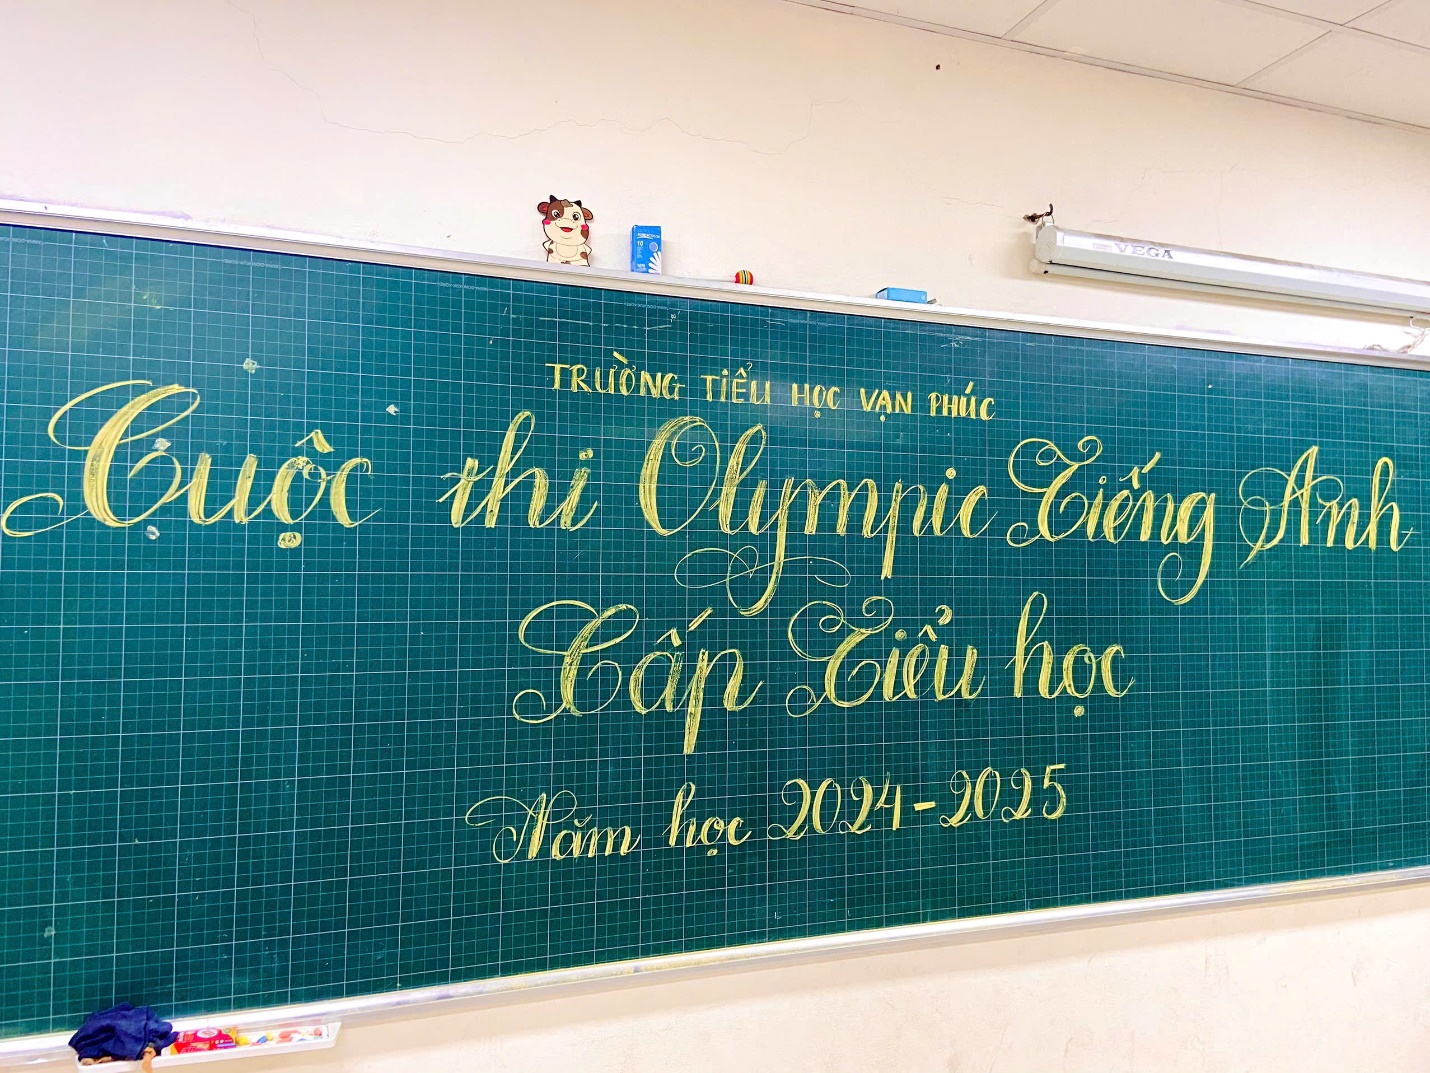 VEGA
TRƯỜNG TIỂU HỌC VẠN PHÚC
Cuộc thi Olympic Tiếng Anh
Cấp Tiểu học
Năm học 2024-2025